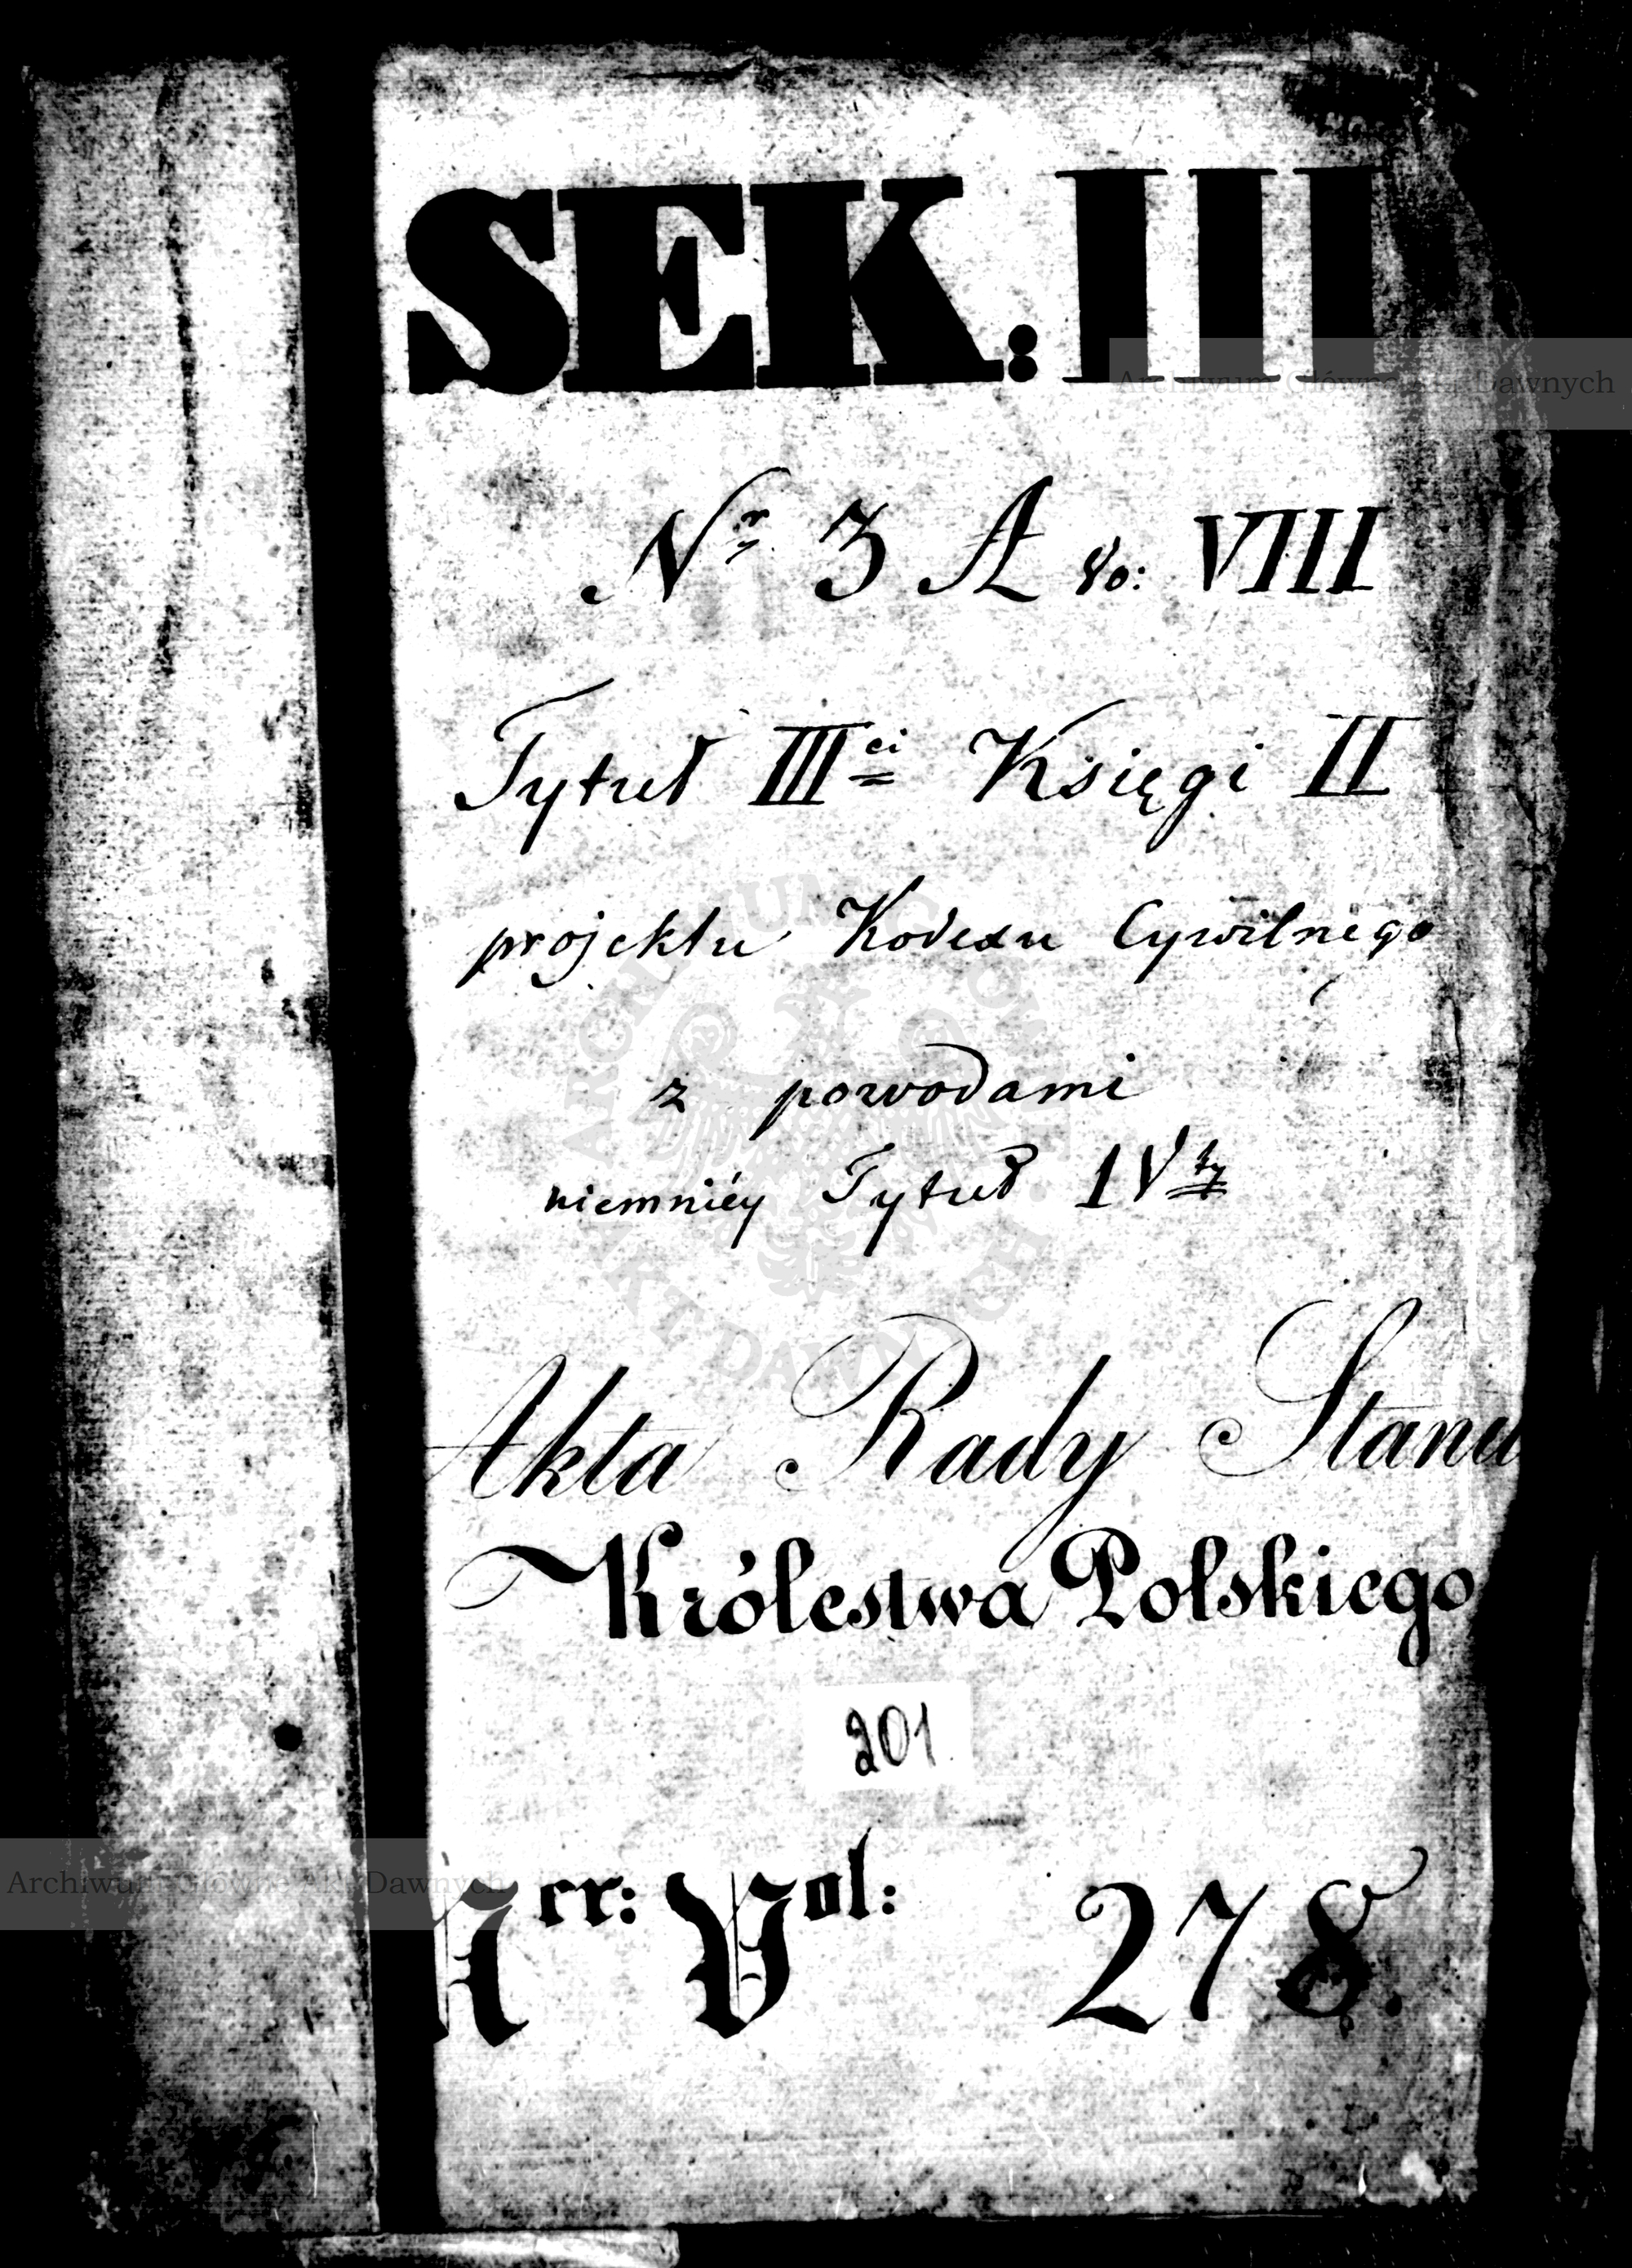 SEK: III
Nr 3 A do: VIII
Tytuł IIIci Księgi II
projektu Kodexu Cywilnego
z powodami
niemniéy Tytuł IVty
Akta Rady Stanu
Królestwa Polskiego
201
Ner: Vol: 278.
Archiwum Główne Akt Dawnych
ARCHIWUM GŁÓWNE AKT DAWNYCH
Archiwum Główne Akt Dawnych